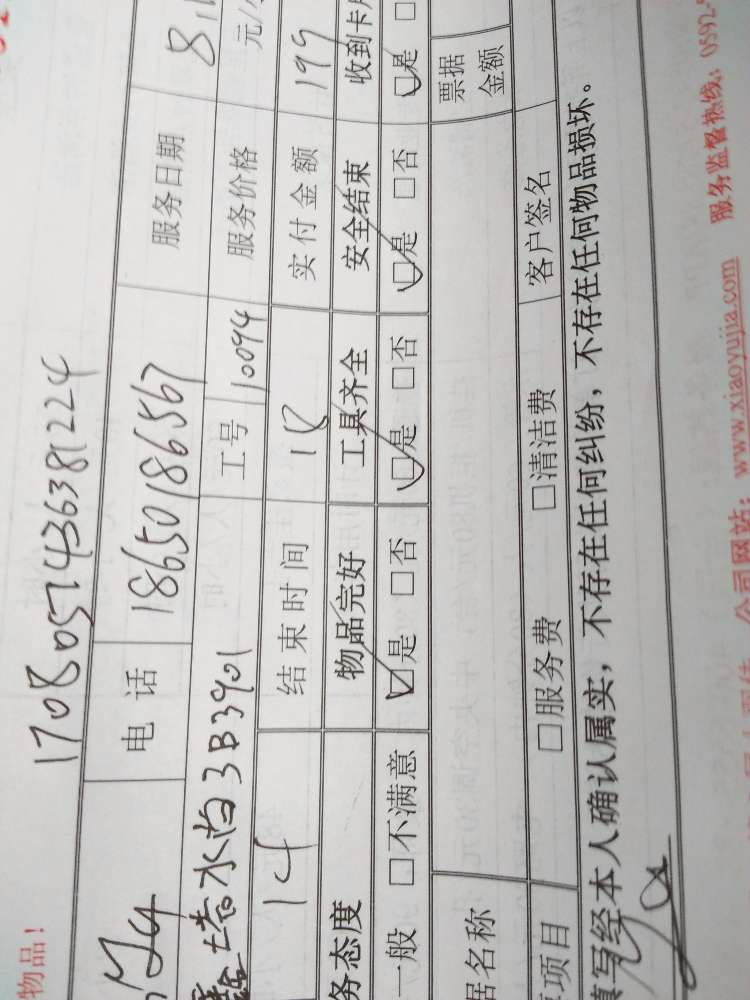 物品！
170805743638 1224
电话 18650186567 服务日期 8.1
塔水岸3B3901 工号 10094 服务价格 元/
14 结束时间 18 实付金额 199
务态度 物品完好 工具齐全 安全结束 收到卡
一般 □不满意 □是 □否 □是 □否 □是 □否 □是 □
据名称 票据金额
项目 □服务费 □清洁费 客户签名
填写经本人确认属实，不存在任何纠纷，不存在任何物品损坏。
公司网站：www.xiaoyujia.com 服务监督热线：0592-